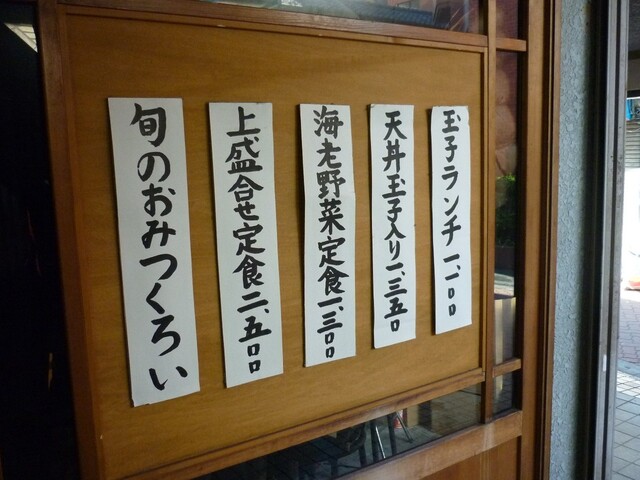 玉子ランチ 一、一〇〇
天丼玉子入り 一、三五〇
海老野菜定食 一、三〇〇
上盛合せ定食 二、五〇〇
旬のおみつくろい